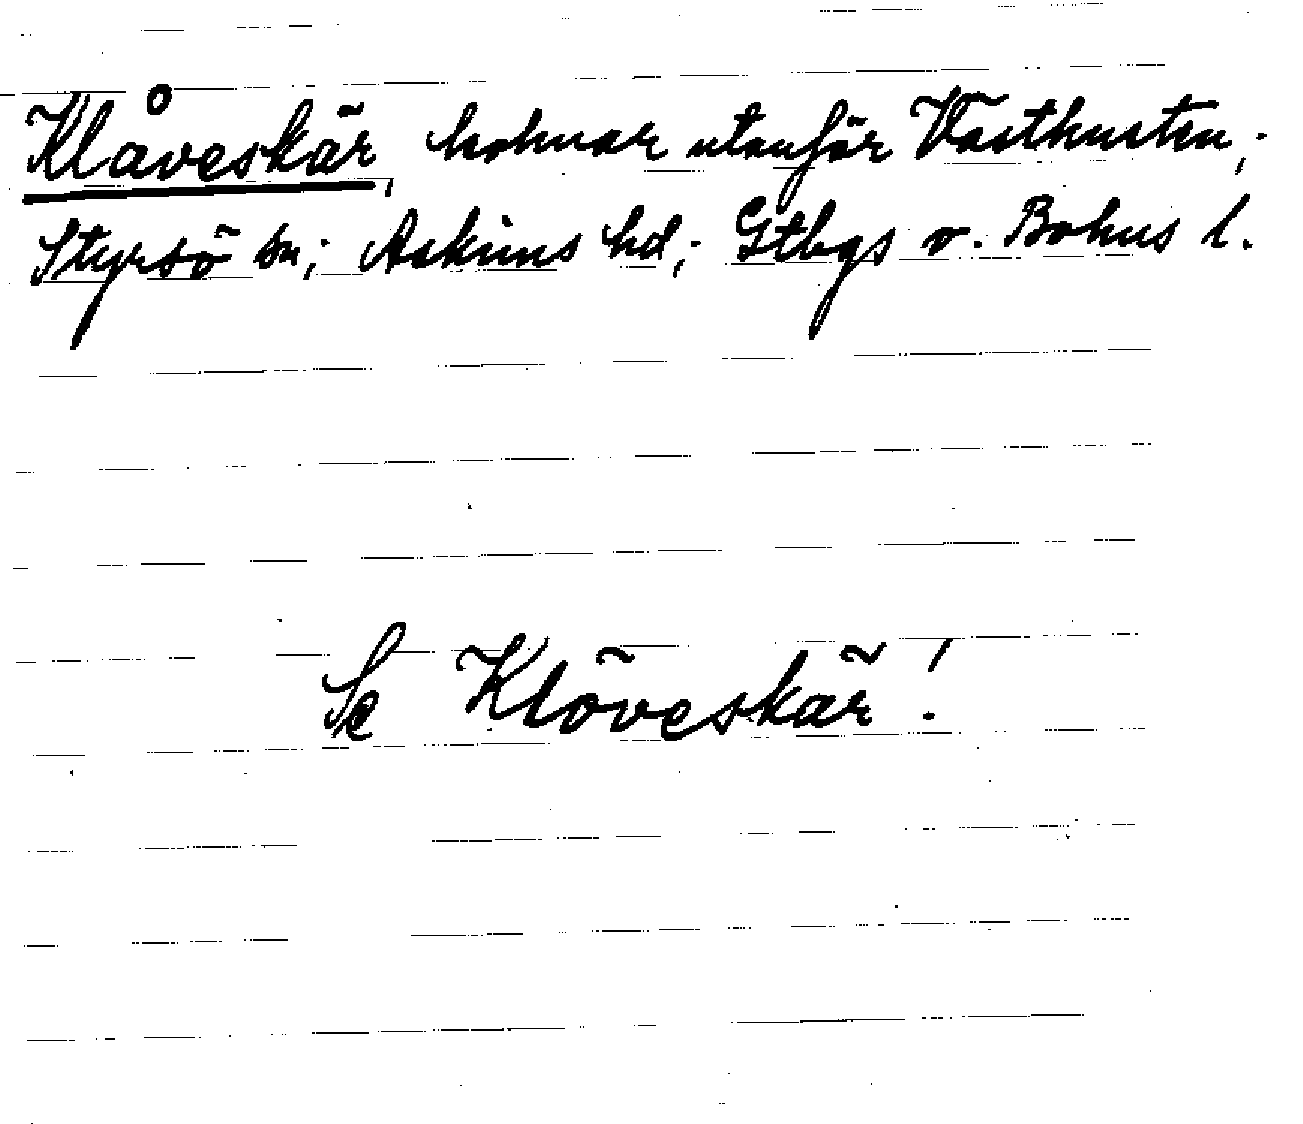 Klåveskär, holmar utanför Västhusten;
Styrsö sn; Askims hd; Gtbgs o. Bohus l.
Se Klöveskär!